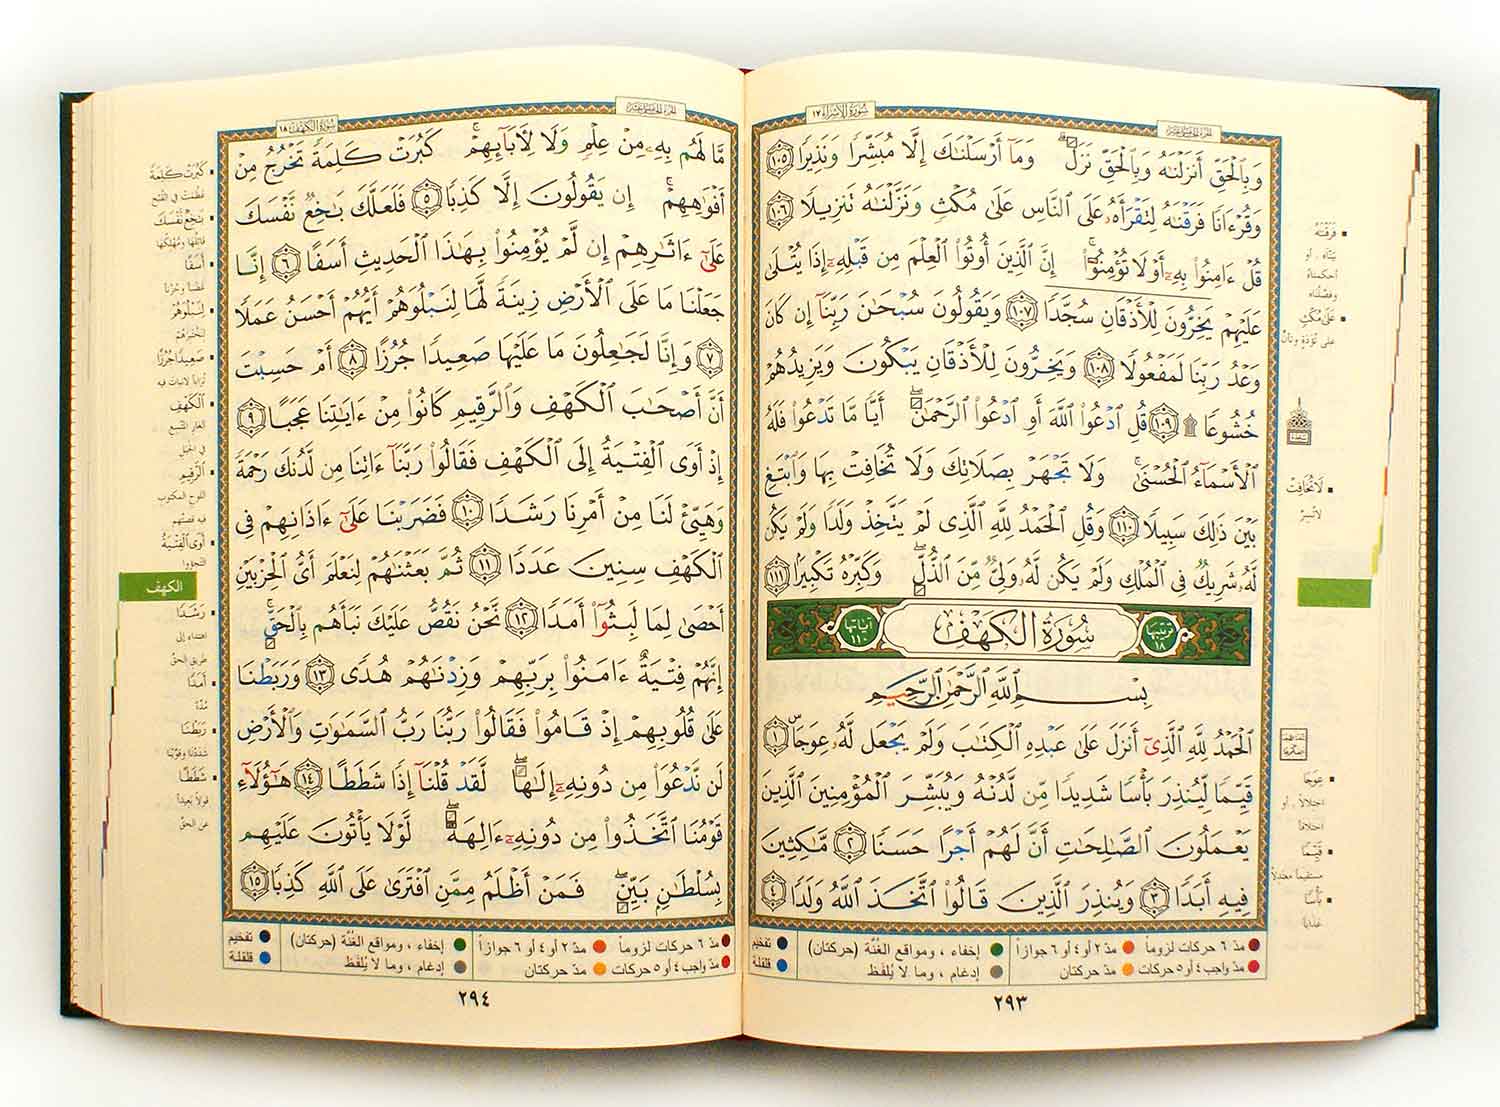 سُورَةُ الإِسْرَاء ١٧
وَبِٱلْحَقِّ أَنزَلْنَٰهُ وَبِٱلْحَقِّ نَزَلَ ۗ وَمَآ أَرْسَلْنَٰكَ إِلَّا مُبَشِّرًا وَنَذِيرًا ١٠٥
وَقُرْءَانًا فَرَقْنَٰهُ لِتَقْرَأَهُۥ عَلَى ٱلنَّاسِ عَلَىٰ مُكْثٍ وَنَزَّلْنَٰهُ تَنزِيلًا ١٠٦
قُلْ ءَامِنُوا۟ بِهِۦٓ أَوْ لَا تُؤْمِنُوٓا۟ ۚ إِنَّ ٱلَّذِينَ أُوتُوا۟ ٱلْعِلْمَ مِن قَبْلِهِۦٓ إِذَا يُتْلَىٰ
عَلَيْهِمْ يَخِرُّونَ لِلْأَذْقَانِ سُجَّدًا ١٠٧ وَيَقُولُونَ سُبْحَٰنَ رَبِّنَآ إِن كَانَ
وَعْدُ رَبِّنَا لَمَفْعُولًا ١٠٨ وَيَخِرُّونَ لِلْأَذْقَانِ يَبْكُونَ وَيَزِيدُهُمْ
خُشُوعًا ١٠٩ ۩ قُلِ ٱدْعُوا۟ ٱللَّهَ أَوِ ٱدْعُوا۟ ٱلرَّحْمَٰنَ ۖ أَيًّا مَّا تَدْعُوا۟ فَلَهُ
ٱلْأَسْمَآءُ ٱلْحُسْنَىٰ ۚ وَلَا تَجْهَرْ بِصَلَاتِكَ وَلَا تُخَافِتْ بِهَا وَٱبْتَغِ
بَيْنَ ذَٰلِكَ سَبِيلًا ١١٠ وَقُلِ ٱلْحَمْدُ لِلَّهِ ٱلَّذِى لَمْ يَتَّخِذْ وَلَدًا وَلَمْ يَكُن
لَّهُۥ شَرِيكٌ فِى ٱلْمُلْكِ وَلَمْ يَكُن لَّهُۥ وَلِىٌّ مِّنَ ٱلذُّلِّ ۖ وَكَبِّرْهُ تَكْبِيرًۢا ١١١
ترتيبها ١٨ سُورَةُ الكَهْفِ آياتها ١١٠
بِسْمِ ٱللَّهِ ٱلرَّحْمَٰنِ ٱلرَّحِيمِ
ٱلْحَمْدُ لِلَّهِ ٱلَّذِىٓ أَنزَلَ عَلَىٰ عَبْدِهِ ٱلْكِتَٰبَ وَلَمْ يَجْعَل لَّهُۥ عِوَجَاۜ ١
قَيِّمًا لِّيُنذِرَ بَأْسًا شَدِيدًا مِّن لَّدُنْهُ وَيُبَشِّرَ ٱلْمُؤْمِنِينَ ٱلَّذِينَ
يَعْمَلُونَ ٱلصَّٰلِحَٰتِ أَنَّ لَهُمْ أَجْرًا حَسَنًا ٢ مَّٰكِثِينَ
فِيهِ أَبَدًا ٣ وَيُنذِرَ ٱلَّذِينَ قَالُوا۟ ٱتَّخَذَ ٱللَّهُ وَلَدًا ٤
فَرَقْنَٰهُ
بيّناه ، أو
أحكمناه
وفصّلناه
عَلَىٰ مُكْثٍ
على تُؤَدةٍ وتأنٍّ
لَا تُخَافِتْ
لا تُسِرَّ
عِوَجًا
اختلالاً ، أو
اختلافاً
قَيِّمًا
مستقيماً معتدلاً
بَأْسًا
عذاباً
مدّ ٦ حركات لزوماً مدّ ٢ أو ٤ أو ٦ جوازاً إخفاء ، ومواقع الغُنَّة (حركتان) تفخيم
مدّ واجب ٤ أو ٥ حركات مدّ حركتان إدغام ، وما لا يُلفَظ قلقلة
٢٩٣
سُورَةُ الكَهْفِ ١٨
مَّا لَهُم بِهِۦ مِنْ عِلْمٍ وَلَا لِءَابَآئِهِمْ ۚ كَبُرَتْ كَلِمَةً تَخْرُجُ مِنْ
أَفْوَٰهِهِمْ ۚ إِن يَقُولُونَ إِلَّا كَذِبًا ٥ فَلَعَلَّكَ بَٰخِعٌ نَّفْسَكَ
عَلَىٰٓ ءَاثَٰرِهِمْ إِن لَّمْ يُؤْمِنُوا۟ بِهَٰذَا ٱلْحَدِيثِ أَسَفًا ٦ إِنَّا
جَعَلْنَا مَا عَلَى ٱلْأَرْضِ زِينَةً لَّهَا لِنَبْلُوَهُمْ أَيُّهُمْ أَحْسَنُ عَمَلًا
٧ وَإِنَّا لَجَٰعِلُونَ مَا عَلَيْهَا صَعِيدًا جُرُزًا ٨ أَمْ حَسِبْتَ
أَنَّ أَصْحَٰبَ ٱلْكَهْفِ وَٱلرَّقِيمِ كَانُوا۟ مِنْ ءَايَٰتِنَا عَجَبًا ٩
إِذْ أَوَى ٱلْفِتْيَةُ إِلَى ٱلْكَهْفِ فَقَالُوا۟ رَبَّنَآ ءَاتِنَا مِن لَّدُنكَ رَحْمَةً
وَهَيِّئْ لَنَا مِنْ أَمْرِنَا رَشَدًا ١٠ فَضَرَبْنَا عَلَىٰٓ ءَاذَانِهِمْ فِى
ٱلْكَهْفِ سِنِينَ عَدَدًا ١١ ثُمَّ بَعَثْنَٰهُمْ لِنَعْلَمَ أَىُّ ٱلْحِزْبَيْنِ
أَحْصَىٰ لِمَا لَبِثُوٓا۟ أَمَدًا ١٢ نَّحْنُ نَقُصُّ عَلَيْكَ نَبَأَهُم بِٱلْحَقِّ ۚ
إِنَّهُمْ فِتْيَةٌ ءَامَنُوا۟ بِرَبِّهِمْ وَزِدْنَٰهُمْ هُدًى ١٣ وَرَبَطْنَا
عَلَىٰ قُلُوبِهِمْ إِذْ قَامُوا۟ فَقَالُوا۟ رَبُّنَا رَبُّ ٱلسَّمَٰوَٰتِ وَٱلْأَرْضِ
لَن نَّدْعُوَا۟ مِن دُونِهِۦٓ إِلَٰهًا ۖ لَّقَدْ قُلْنَآ إِذًا شَطَطًا ١٤ هَٰٓؤُلَآءِ
قَوْمُنَا ٱتَّخَذُوا۟ مِن دُونِهِۦٓ ءَالِهَةً ۖ لَّوْلَا يَأْتُونَ عَلَيْهِم
بِسُلْطَٰنٍۭ بَيِّنٍ ۖ فَمَنْ أَظْلَمُ مِمَّنِ ٱفْتَرَىٰ عَلَى ٱللَّهِ كَذِبًا ١٥
كَبُرَتْ كَلِمَةً
عظمت في القبح
بَٰخِعٌ نَّفْسَكَ
قاتلها ومُهلكها
أَسَفًا
غضباً وحُزناً
لِنَبْلُوَهُمْ
لنختبرهم
صَعِيدًا جُرُزًا
تُراباً لا نبات فيه
ٱلْكَهْفِ
الغار المتّسع
في الجبل
ٱلرَّقِيمِ
اللوح المكتوب
فيه قصّتهم
أَوَى ٱلْفِتْيَةُ
التجؤوا
الكهف
رَشَدًا
اهتداء إلى
طريق الحقّ
أَمَدًا
مُدّة
رَبَطْنَا
شددنا وقوّينا
شَطَطًا
قولاً بعيداً
عن الحقّ
مدّ ٦ حركات لزوماً مدّ ٢ أو ٤ أو ٦ جوازاً إخفاء ، ومواقع الغُنَّة (حركتان) تفخيم
مدّ واجب ٤ أو ٥ حركات مدّ حركتان إدغام ، وما لا يُلفَظ قلقلة
٢٩٤